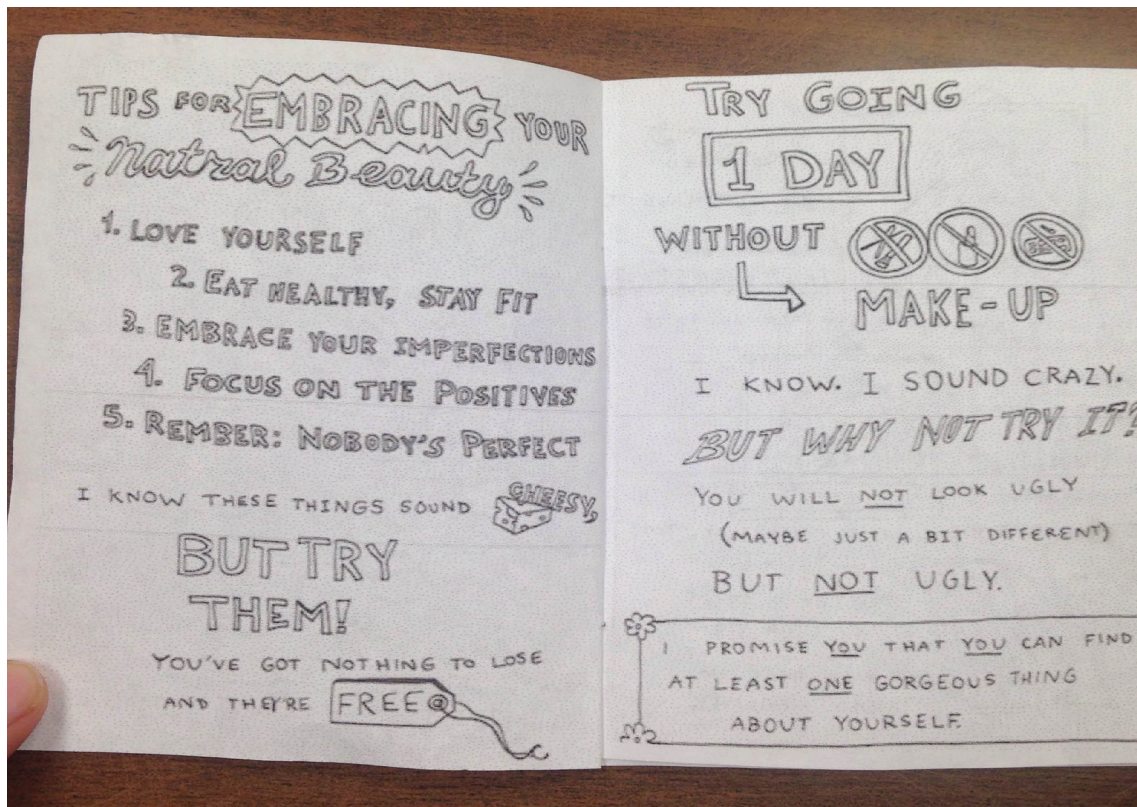 TIPS FOR EMBRACING YOUR
Natral Beauty
1. LOVE YOURSELF
2. EAT HEALTHY, STAY FIT
3. EMBRACE YOUR IMPERFECTIONS
4. FOCUS ON THE POSITIVES
5. REMBER: NOBODY'S PERFECT
I KNOW THESE THINGS SOUND CHEESY,
BUT TRY
THEM!
YOU'VE GOT NOTHING TO LOSE
AND THEY'RE FREE
TRY GOING
1 DAY
WITHOUT
MAKE-UP
I KNOW. I SOUND CRAZY.
BUT WHY NOT TRY IT?
YOU WILL NOT LOOK UGLY
(MAYBE JUST A BIT DIFFERENT)
BUT NOT UGLY.
I PROMISE YOU THAT YOU CAN FIND
AT LEAST ONE GORGEOUS THING
ABOUT YOURSELF.